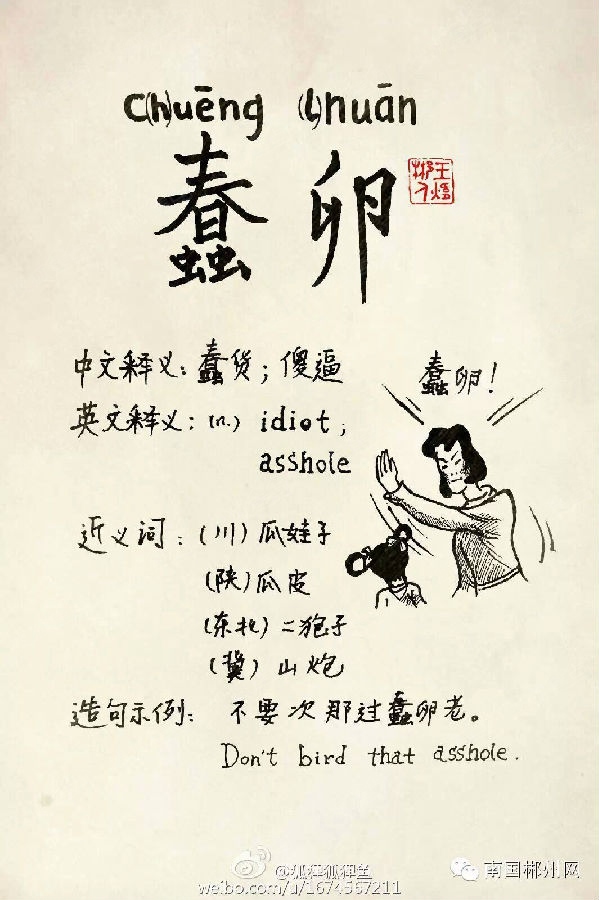 C(h)uēng (l)nuān
蠢卵
中文释义：蠢货；傻逼
英文释义：(n.) idiot；
asshole
蠢卵！
近义词：(川)瓜娃子
(陕)瓜皮
(东北)二狍子
(冀)山炮
造句示例：不要次那过蠢卵老。
Don't bird that asshole.
@狐狸狐狸鱼
weibo.com/u/1674567211
南国郴州网